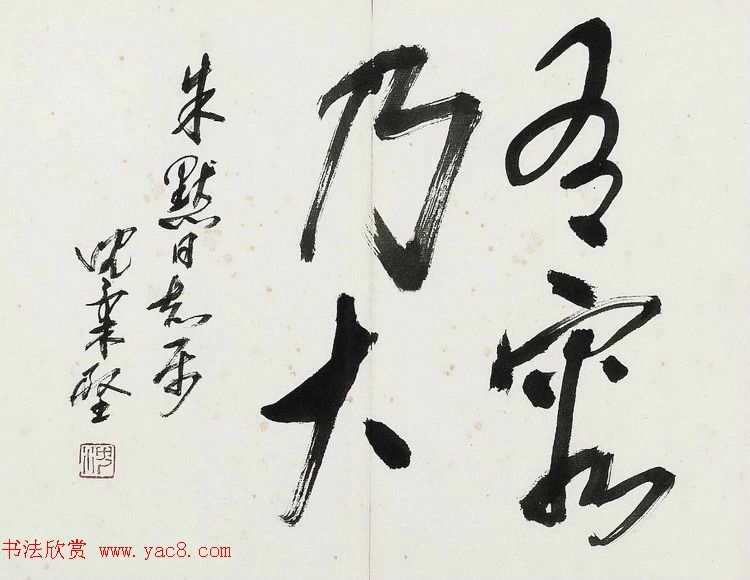 有容
乃大
朱默同志
沈柔坚
书法欣赏 www.yac8.com